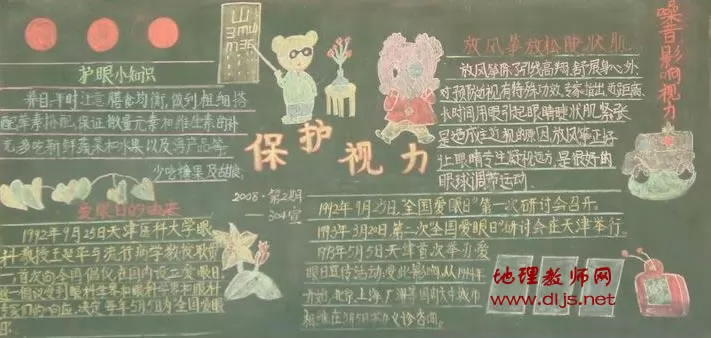 山
E3mш
m3E
护眼小知识
养目平时注意膳食均衡,做到粗细搭
配荤素搭配,保证微量元素和维生素的补
充,多吃新鲜蔬菜和水果以及海产品等。
少吃糖果及甜食。
爱眼日的由来
1992年9月25日天津医科大学眼
科教授王延华与流行病学教授耿
首次向全国倡议在国内设立爱眼日
倡议受到眼科
响应,决定每年5月5日为全国爱眼
日
保护视力
2008·第2期
—304宣
放风筝放松睫状肌
放风筝除了引线高翔,舒展身心外,
对预防近视有特殊功效,专家指出,近距离、
长时间用眼引起眼睛睫状肌紧张
是造成近视的原因,放风筝正好
让眼睛专注凝视远方,是很好的
眼球调节运动。
噪音影响视力
1992年9月25日,"全国爱眼日"第一次研讨会召开。
1993年3月20日第二次"全国爱眼日"研讨会在天津举行。
1993年5月5日天津首次举办爱
眼日宣传活动,受此影响,从1994年
开始,北京、上海、广州等国内大中城市
相继在5月5日举办义诊咨询。
地理教师网
www.dljs.net